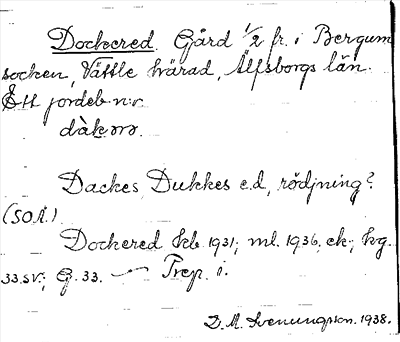 Dockered. Gård 1/2 fr. i Bergum
socken, Vättle härad, Älfsborgs län.
Ett jordeb.n:r
Dackes, Dukkes e.d., rödjning?
(SOÄ.)
Dockered kb. 1931; ml. 1936, ek; hvg.
33.sv.; G. 33. — Prep. i.
D. M. Svenungsson. 1938.